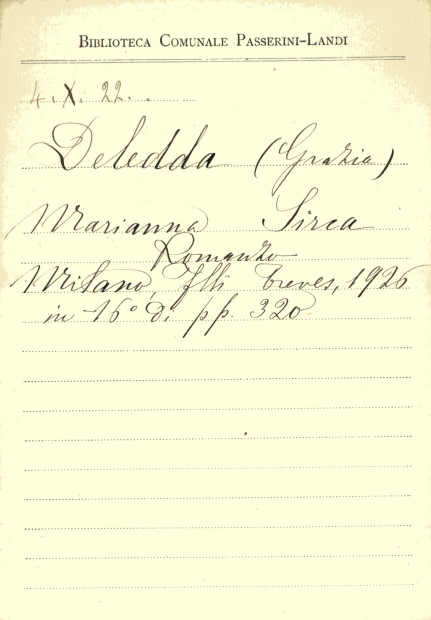 BIBLIOTECA COMUNALE PASSERINI-LANDI
4. X. 22.
Deledda (Grazia)
Marianna Sirca
Romanzo
Milano, flli Treves, 1926
in 16° di pp. 320